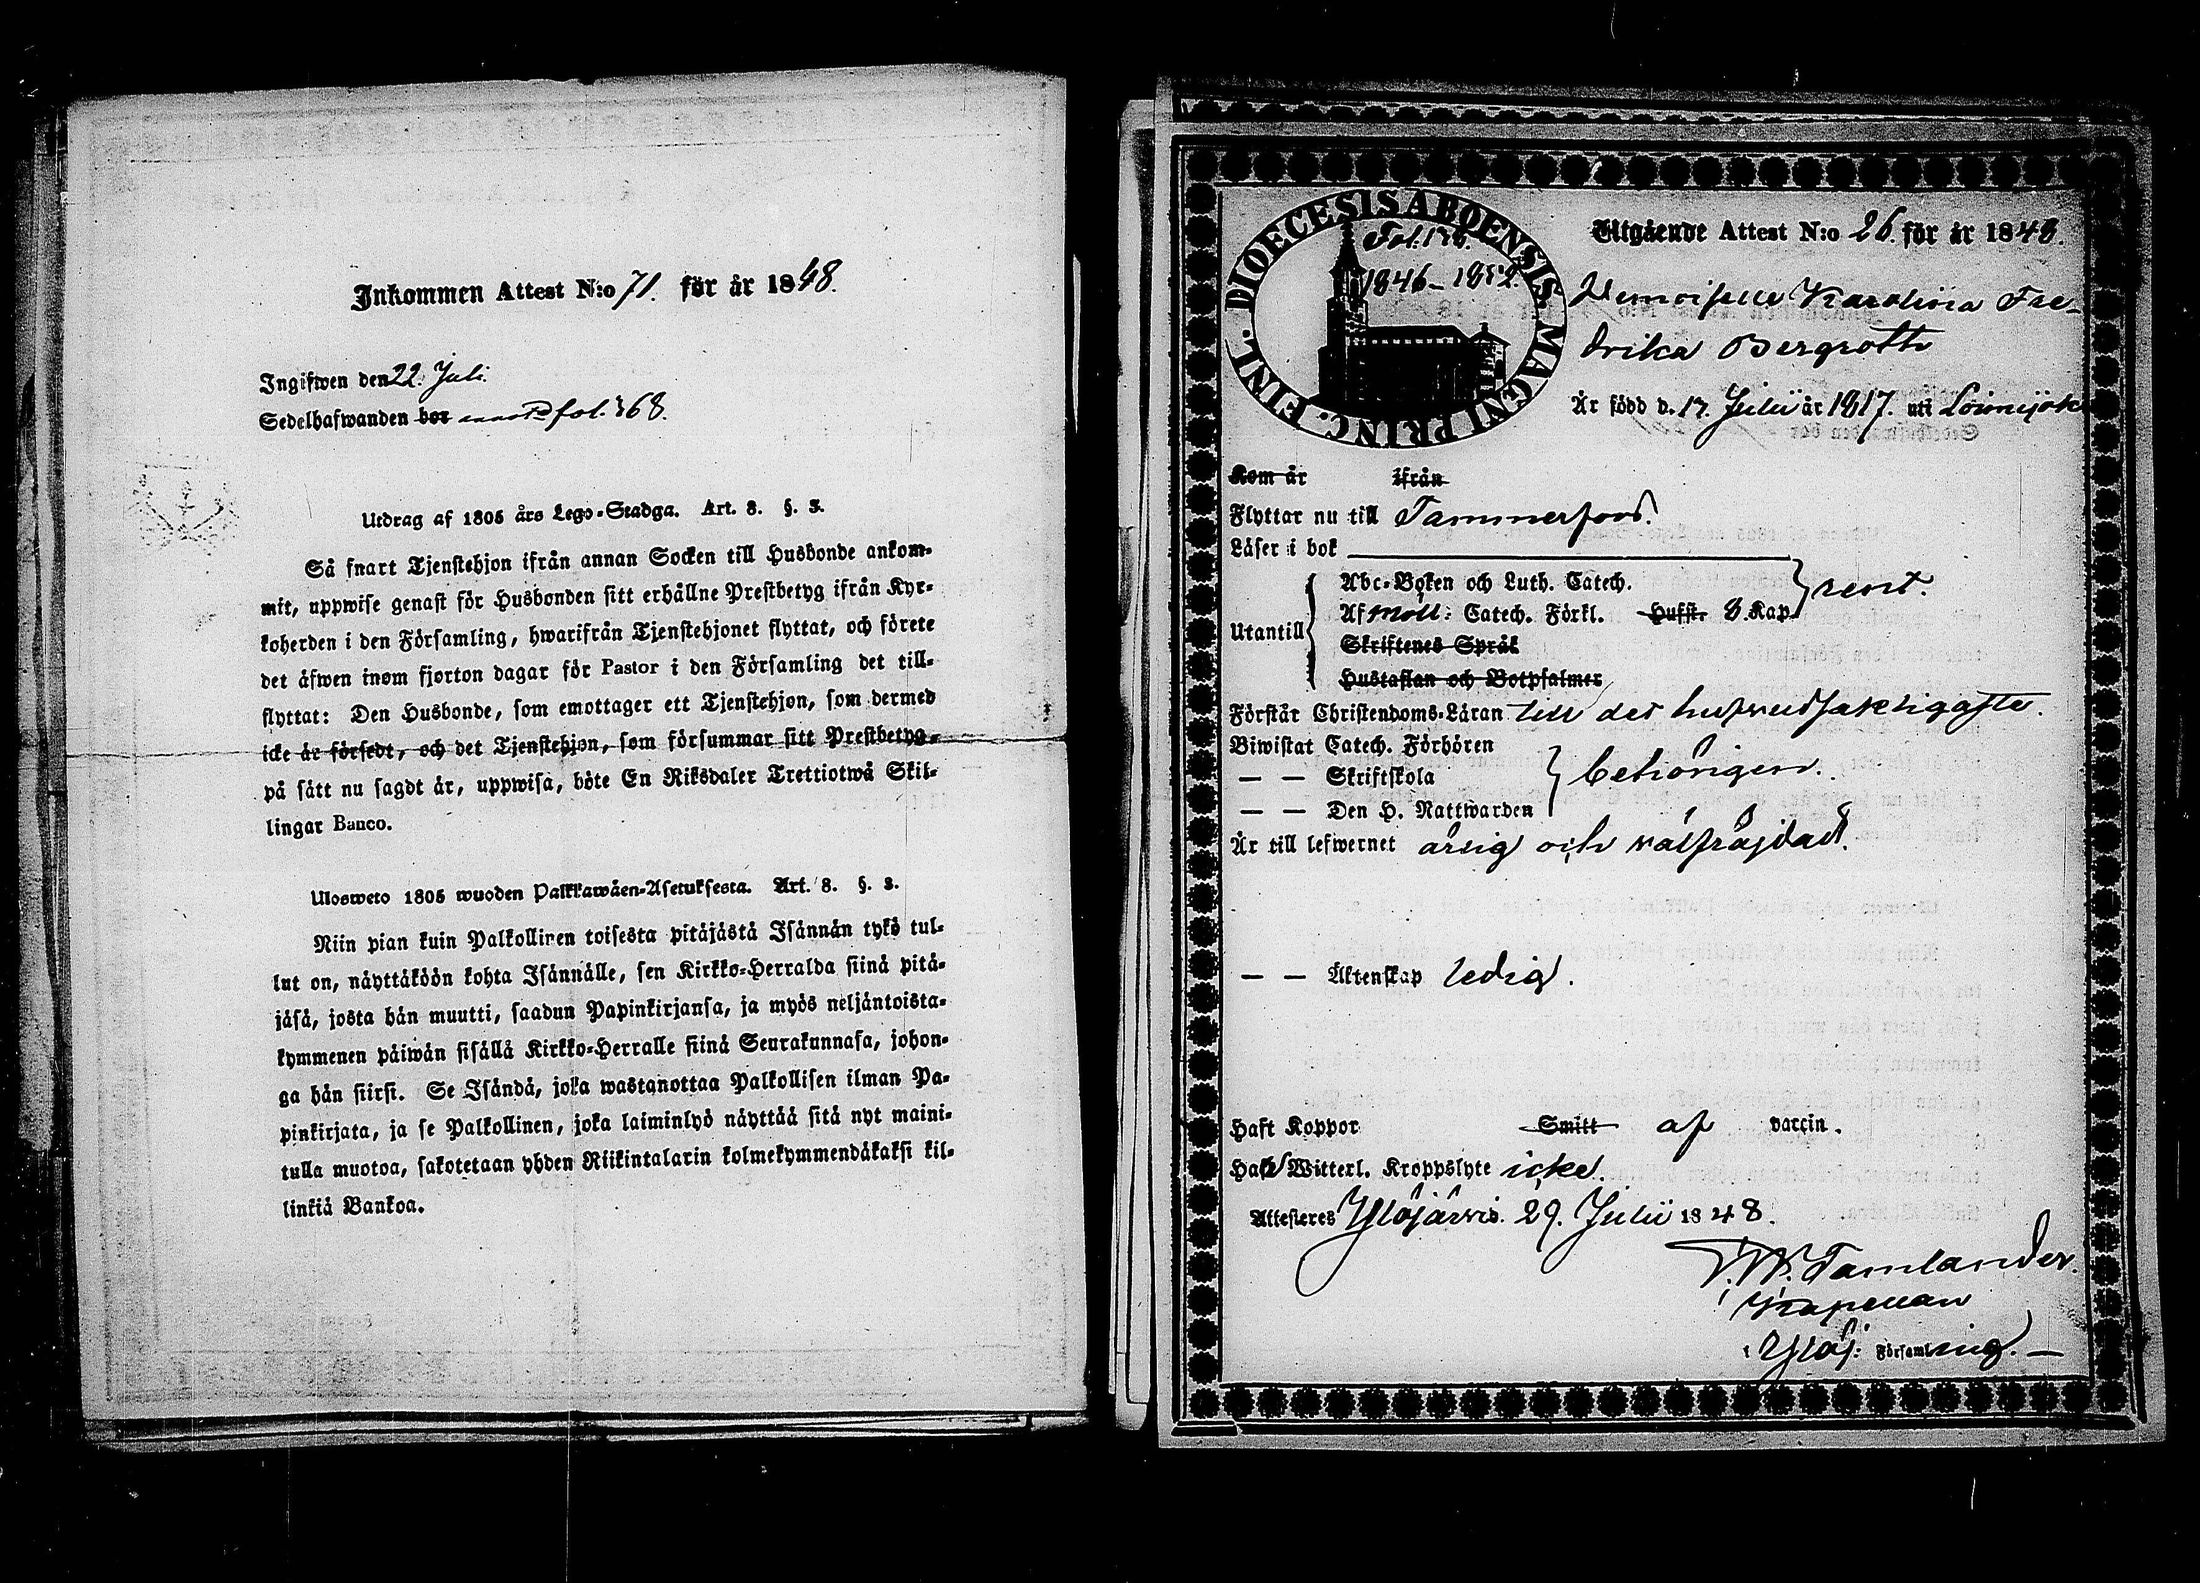 Inkommen Attest N:o 71. för år 1848.
Ingifwen den 22. Juli.
Sedelhafwanden bor fol. 368.
Utdrag af 1805 års Lego-Stadga. Art. 8. §. 3.
Så snart Tjenstehjon ifrån annan Socken till Husbonde ankom-
mit, uppwise genast för Husbonden sitt erhållne Prestbetyg ifrån Kyr-
koherden i den Församling, hwarifrån Tjenstehjonet flyttat, och förete
det äfwen inom fjorton dagar för Pastor i den Församling det till-
flyttat: Den Husbonde, som emottager ett Tjenstehjon, som dermed
icke är försedt, och det Tjenstehjon, som försummar sitt Prestbetyg,
på sätt nu sagdt är, uppwisa, böte En Riksdaler Trettiotwå Skil-
lingar Banco.
Ulosweto 1805 wuoden Palkkawäen-Asetuksesta. Art. 8. §. 3.
Niin pian kuin Palkollinen toisesta pitäjästä Isännän tykö tul-
lut on, näyttäköön kohta Isännälle, sen Kirkko-Herralda siinä pitä-
jäsä, josta hän muutti, saadun Papinkirjansa, ja myös neljäntoista-
kymmenen päiwän sisällä Kirkko-Herralle siinä Seurakunnasa, johon-
ga hän siirsi. Se Isändä, joka wastanottaa Palkollisen ilman Pa-
pinkirjata, ja se Palkollinen, joka laiminlyö näyttää sitä nyt maini-
tulla muotoa, sakotetaan yhden Riikintalarin kolmekymmendäkaksi kil-
linkiä Bankoa.
DIOECESIS ABOENSIS. MAGNI PRINC. FINL.
Fol. 176.
1846-1852.
Utgående Attest N:o 26. för år 1848.
Demoiselle Karolina Fre-
drika Bergroth
Är född d. 17. Julii år 1817. uti Loimijoki
Kom år ifrån
Flyttar nu till Tammerfors.
Läser i bok
Utantill
Abc-Boken och Luth. Catech.
Af Möll: Catech. Förkl. Hufst. 8. Kap
Skriftenes Språk
Hustaflan och Botpsalmer
rent.
Förstår Christendoms-Läran till det hufvudsakligaste.
Biwistat Catech. Förhören
— — Skriftskola
— — Den H. Nattwarden
behörigen.
Är till lefwernet ärlig och välfräjdad.
— — Äktenskap ledig.
Haft Koppor Smitt af vaccin.
Har Witterl. Kroppslyte icke.
Attesteres Ylöjärvi. 29. Julii 1848.
Tamlander.
Kapellan
i Ylöj: Församling. —